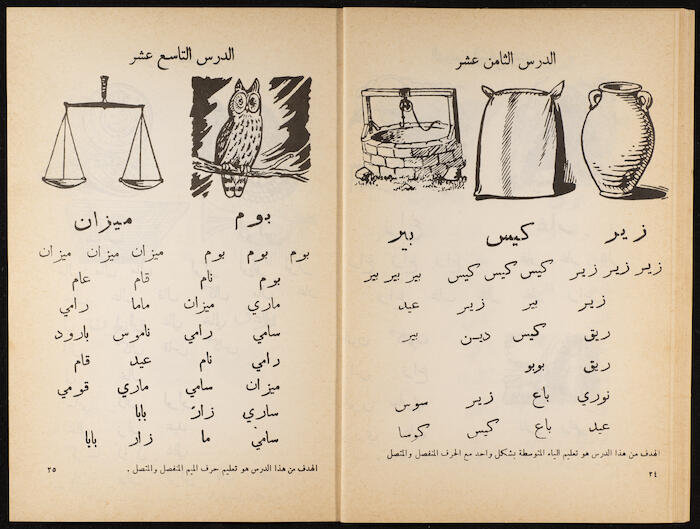 الدرس الثامن عشر
زير كيس بير
زير زير زير كيس كيس كيس بير بير بير
زير بير زير عيد
ريق كيس ديـن بير
ريق بوبو
نوري باع زير سوس
عيد باع كيس كوسا
الهدف من هذا الدرس هو تعليم الياء المتوسطة بشكل واحد مع الحرف المنفصل والمتصل
٢٤
الدرس التاسع عشر
بوم ميزان
بوم بوم بوم ميزان ميزان ميزان
بوم نام قام عام
ماري ميزان ماما رامي
سامي رامي ناموس بارود
رامي نام عيد قام
ميزان سامي ماري قومي
ساري زار بابا
سامي ما زار بابا
الهدف من هذا الدرس هو تعليم حرف الميم المنفصل والمتصل .
٢٥